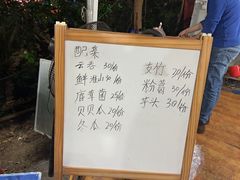 配菜
云吞 30/份
鲜淮山 30/份
茼蒿菌 25/份
贝贝瓜 25/份
冬瓜 25/份
支竹 20/份
粉葛 30/份
芋头 30/份